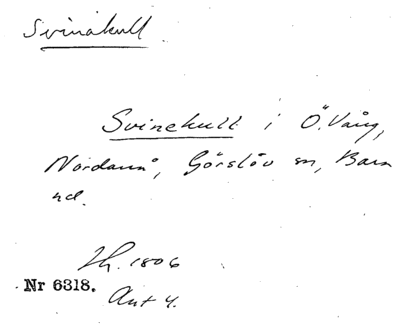 Svinakull
Svinekull i Ö.Vång,
Nordanå, Görslöv sn, Bara
hd.
Lh. 1806
Nr 6318.
Akt 4.